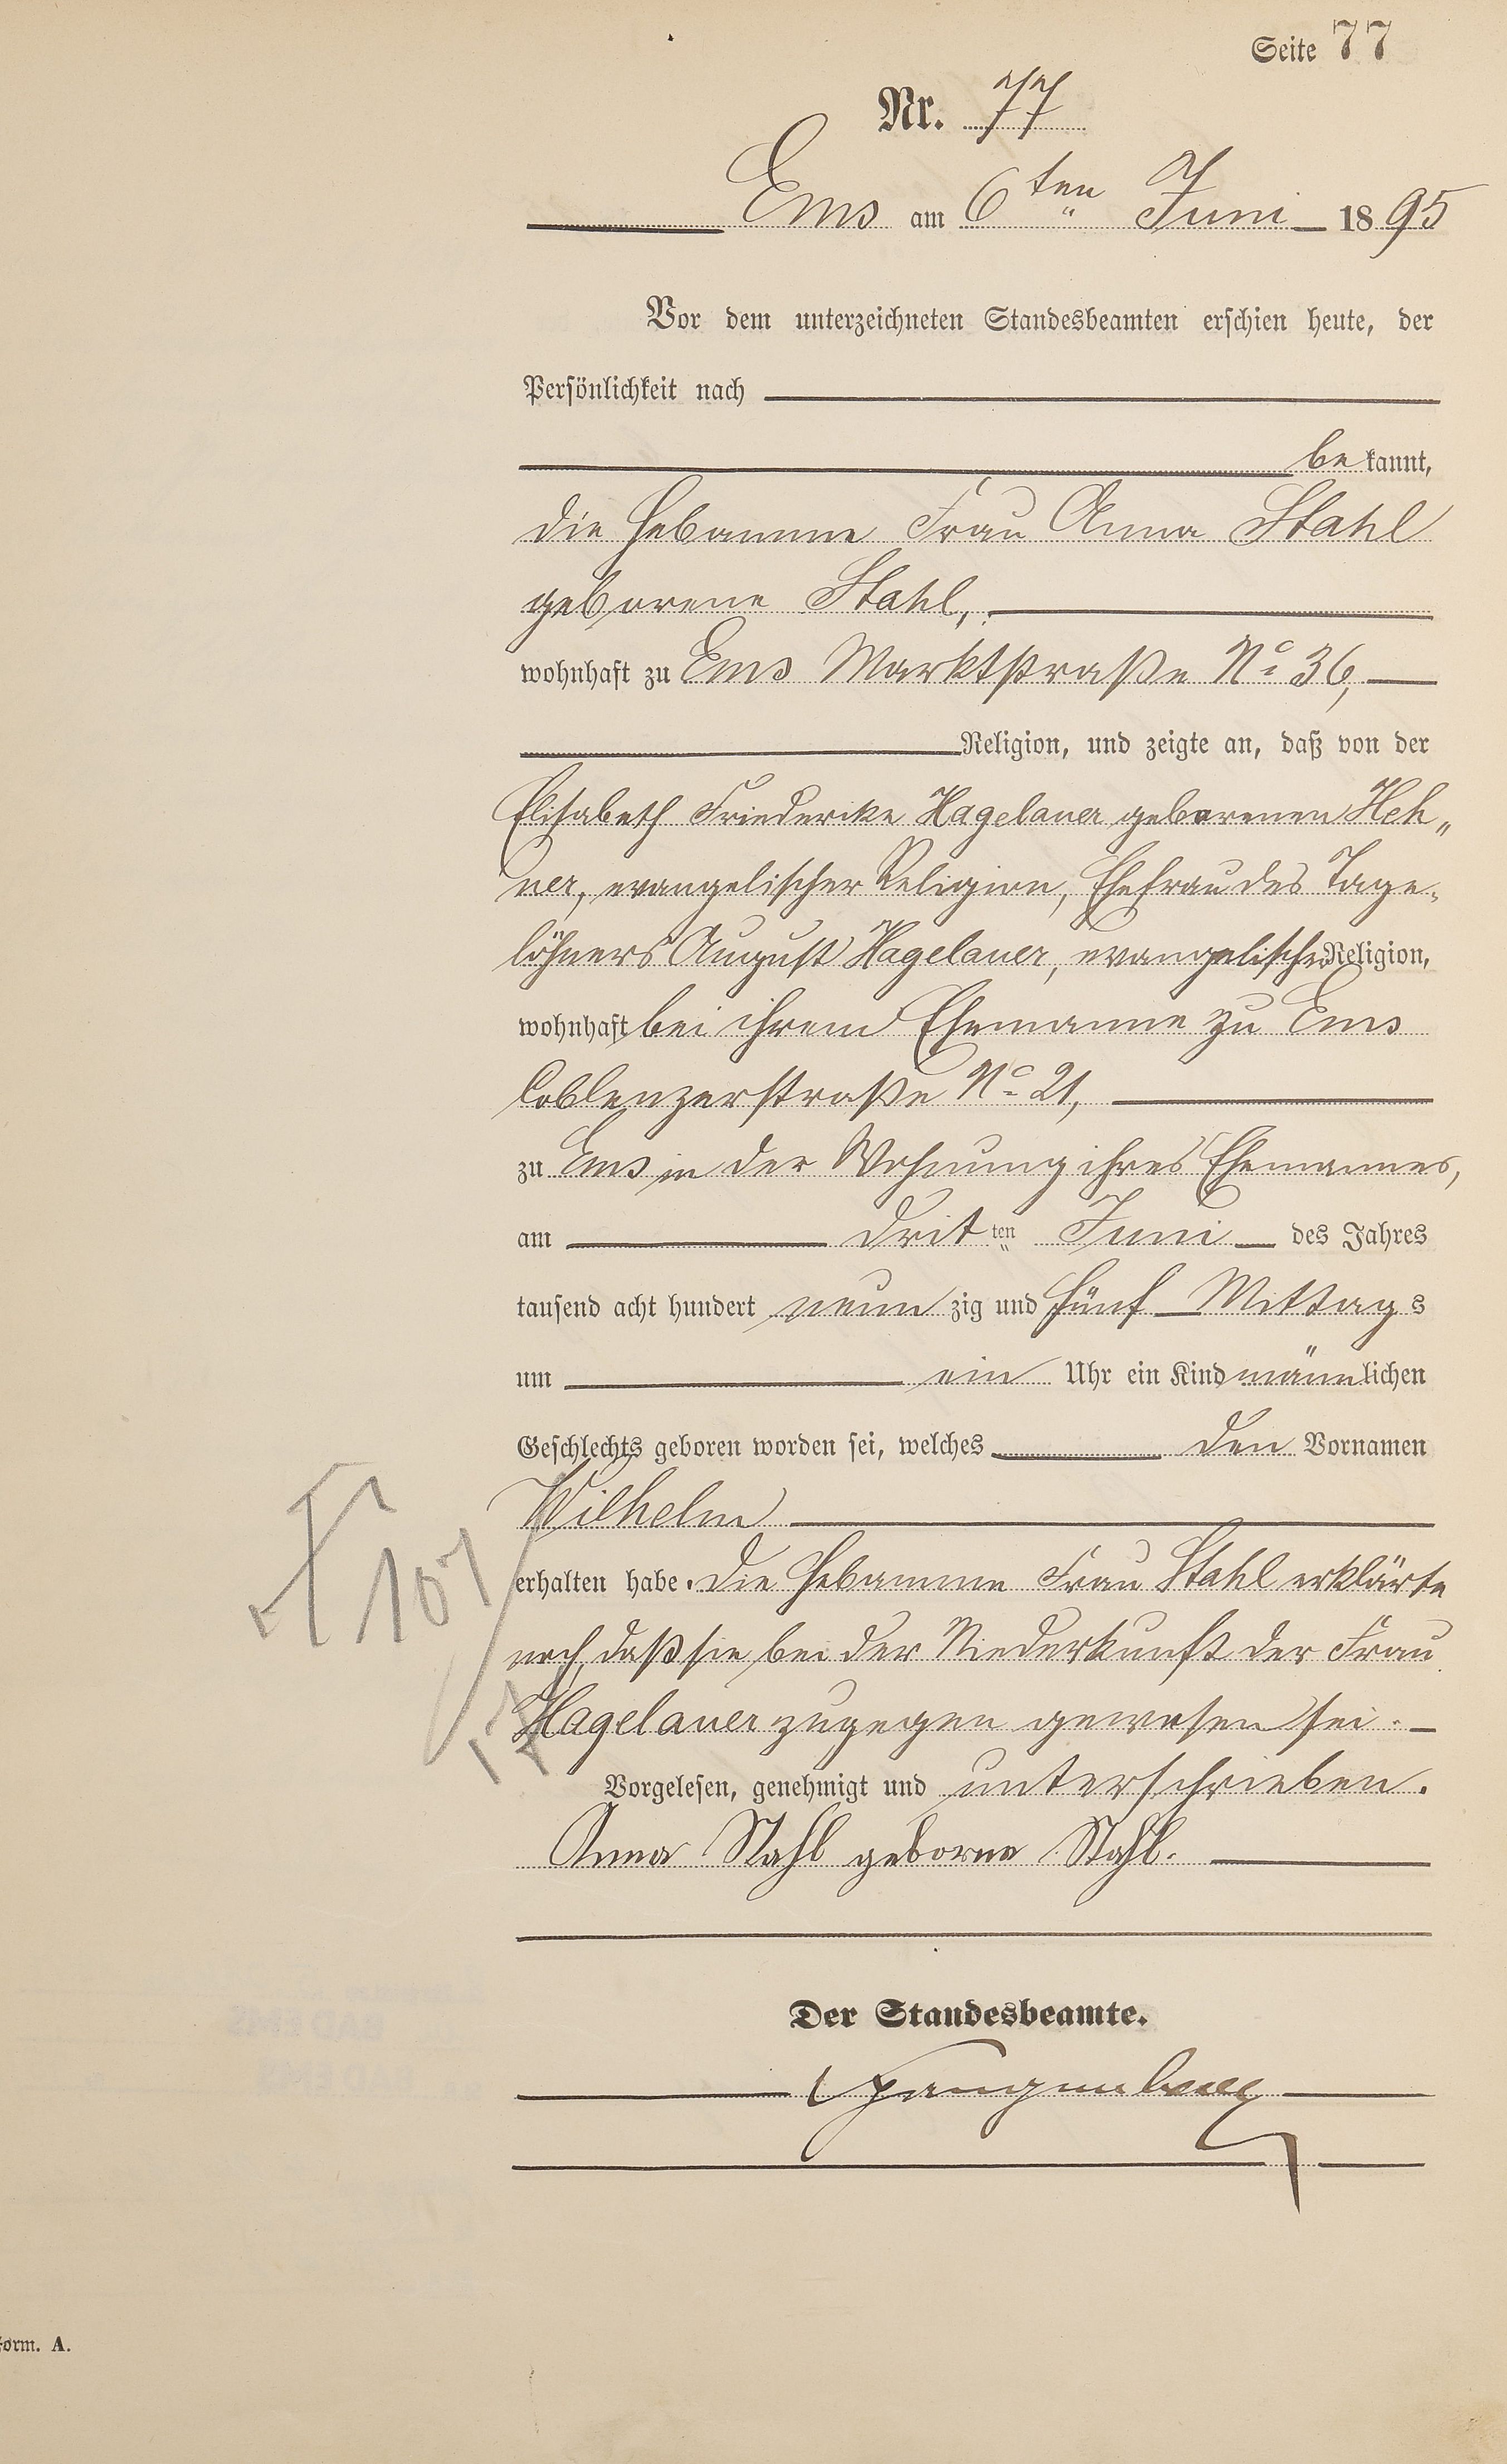 Seite 77
Nr. 77
Ems am 6ten Juni 1895
Vor dem unterzeichneten Standesbeamten erschien heute, der
Persönlichkeit nach
bekannt,
die Hebamme Frau Anna Stahl
geborene Stahl,
wohnhaft zu Ems Marktstraße No 36,
Religion, und zeigte an, daß von der
Elisabeth Friederike Hagelauer geborenen Heh„
ner, evangelischer Religion, Ehefrau des Tage-
löhners August Hagelauer, evangelischer Religion,
wohnhaft bei ihrem Ehemanne zu Ems
Coblenzerstraße No 21,
zu Ems in der Wohnung ihres Ehemannes,
am dritten Juni des Jahres
tausend acht hundert neunzig und fünf Mittags
um ein Uhr ein Kind männlichen
Geschlechts geboren worden sei, welches den Vornamen
Wilhelm
erhalten habe. Die Hebamme Frau Stahl erklärte
noch, daß sie bei der Niederkunft der Frau
Hagelauer zugegen gewesen sei.
Vorgelesen, genehmigt und unterschrieben.
Anna Stahl geborne Stahl.
Der Standesbeamte.
Form. A.